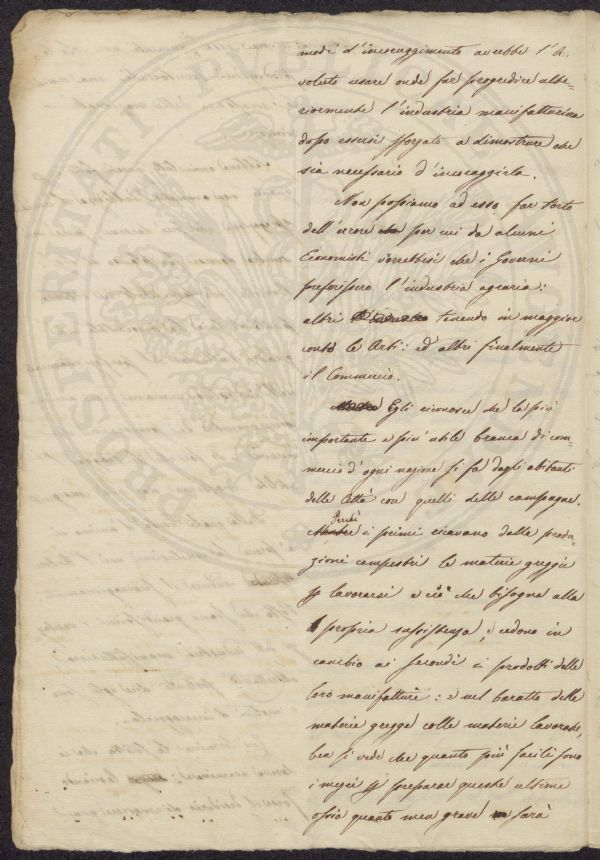 modi d'incoraggimento avrebbe l'A.
voluto usare onde far progredire ulte-
riormente l'industria manifatturiera
dopo essersi sforzato a dimostrare che
sia necessario d'incoraggirla.
Non possiamo ad esso far torto
dell'errore per cui da alcuni
Economisti vorrebbesi che i Governi
preferissero l'industria agraria:
altri tenendo in maggior
conto le Arti: ed altri finalmente
il Commercio.
Egli riconosce che la più
importante e più utile branca di com-
mercio d'ogni nazione si fa dagli abitanti
delle Città con quelli delle campagne.
Perchè
i primi ricavano dalle produ-
zioni campestri le materie greggie
p lavorarsi e ciò che bisogna alla
propria sussistenza, e cedono in
cambio ai secondi i prodotti delle
loro manifatture: e nel baratto delle
materie gregge colle materie lavorate,
ben si vede che quanto più facili sono
i mezzi p preparar queste ultime
ossia quanto men grave sarà
PROSPERITATI PUBLICAE